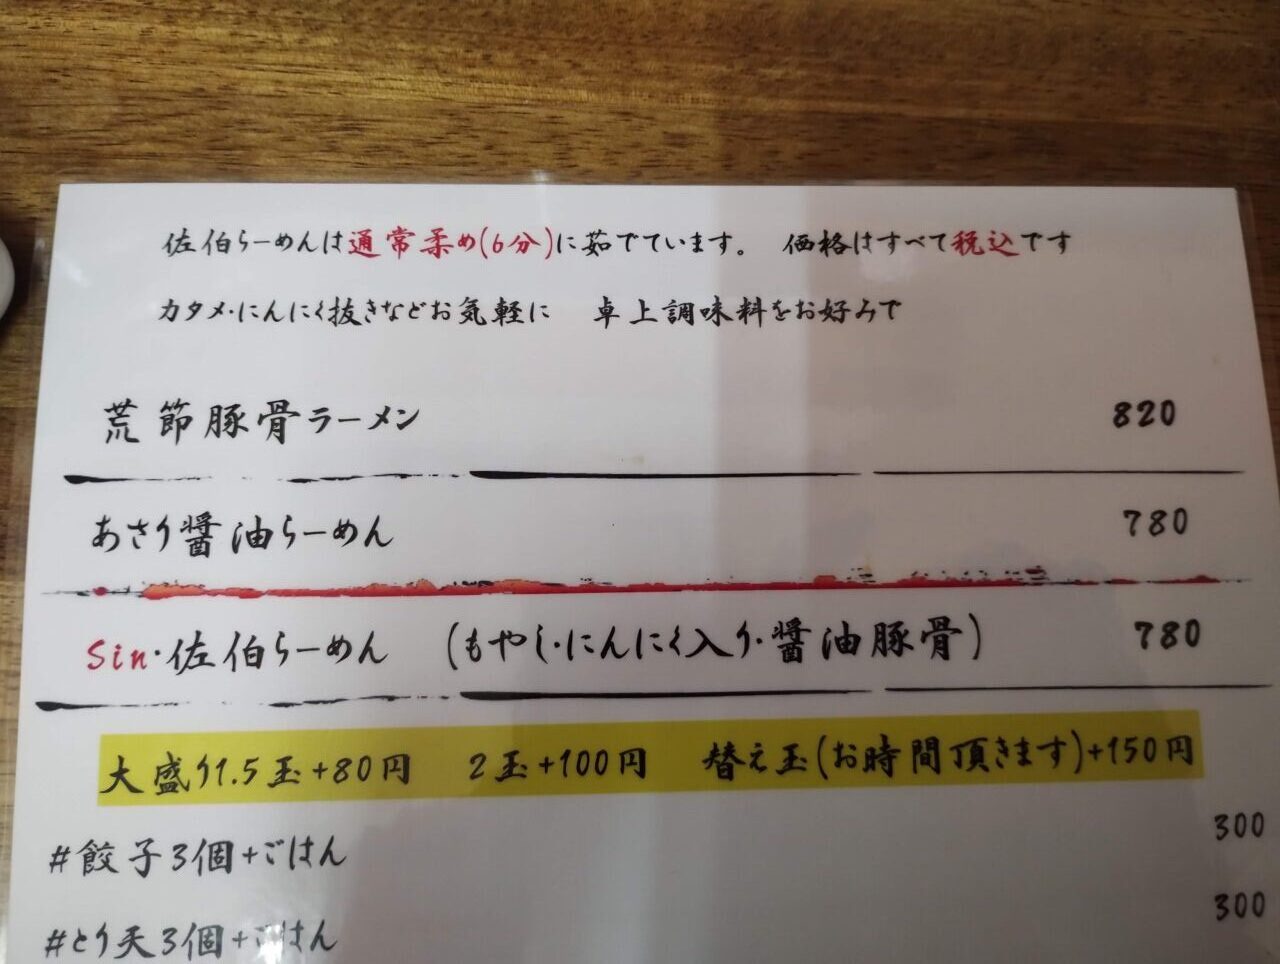 佐伯らーめんは通常柔め(6分)に茹でています。 価格はすべて税込です
カタメ・にんにく抜きなどお気軽に 卓上調味料をお好みで
荒節豚骨ラーメン 820
あさり醤油らーめん 780
Sin・佐伯らーめん (もやし・にんにく入り・醤油豚骨) 780
大盛り1.5玉+80円 2玉+100円 替え玉(お時間頂きます)+150円
#餃子3個+ごはん 300
#とり天3個+ごはん 300